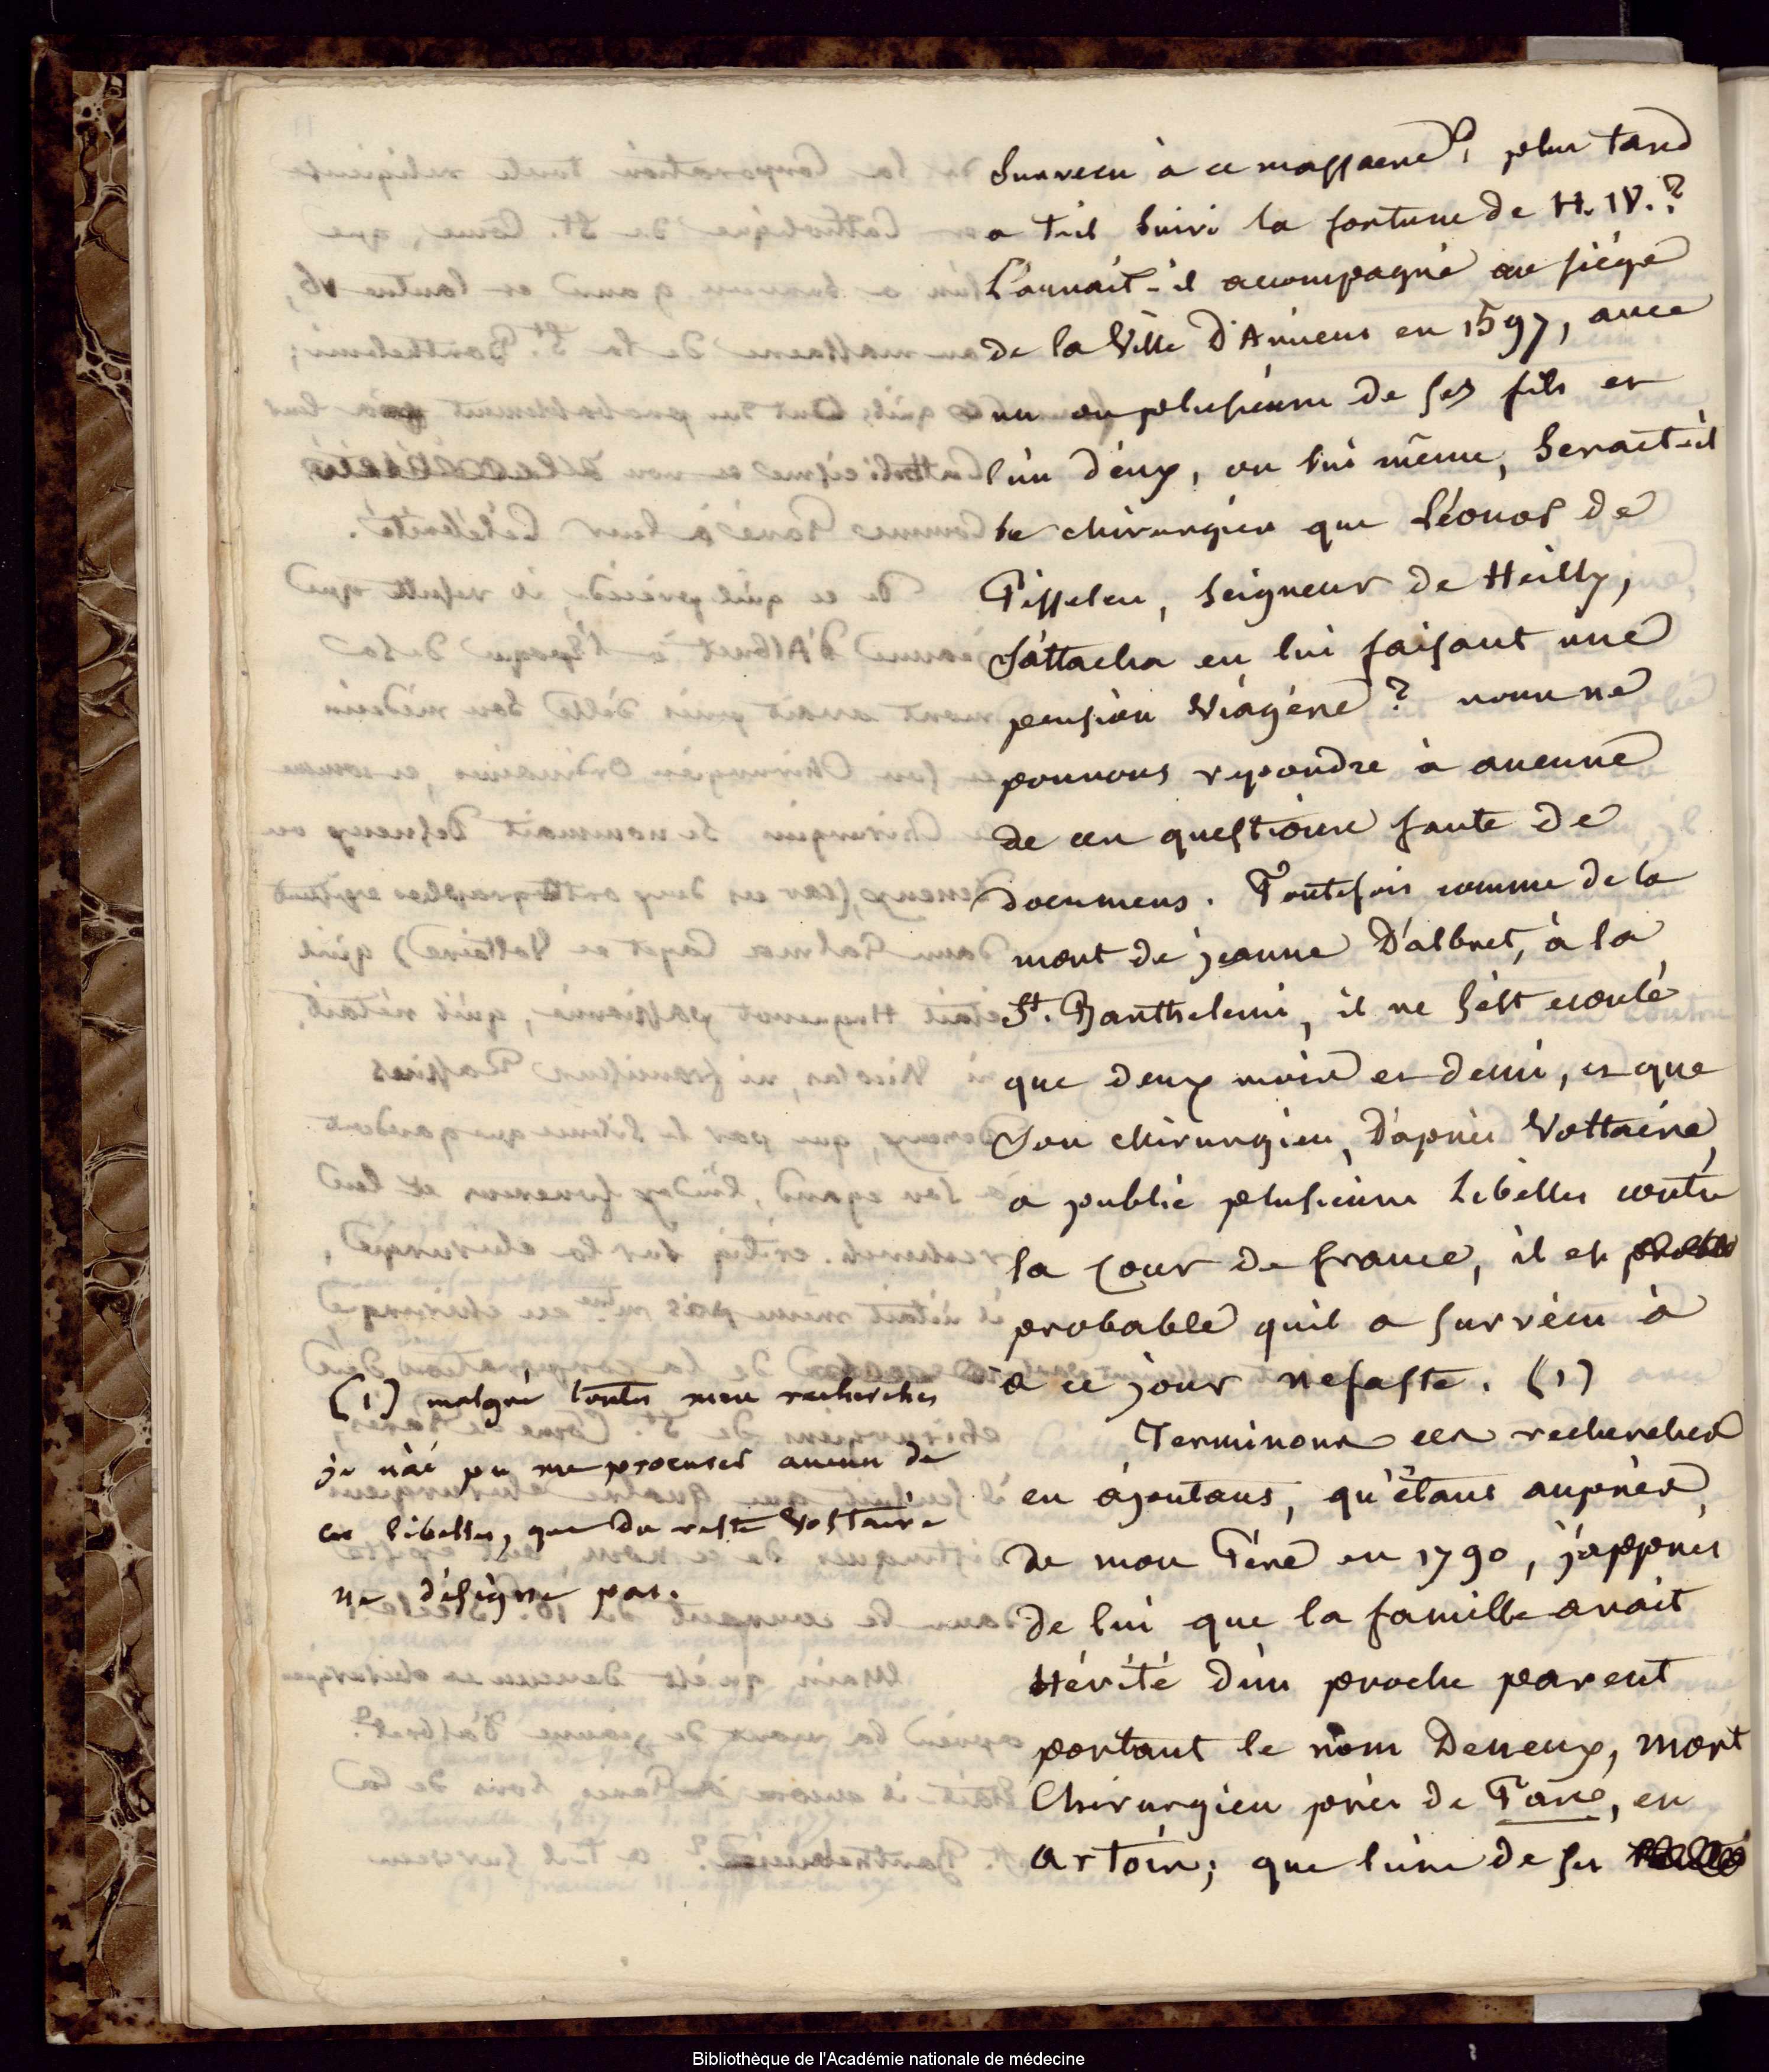 Survecu à ce massacre?; plus tard
a t'il suivi la fortune de H. IV.?
L'aurait-il accompagné au siége
de la Ville D'Amiens en 1597, avec
un ou plusieurs de ses fils et
l'un d'eux, ou lui même, Serait-il
le chirurgien que Léonor de
Pisseleu, Seigneur de Heilly,
s'attacha en lui faisant une
pension Viagére? nous ne
pouvons repondre à aucune
de ces questions faute de
documens. Toutefois comme de la
mort de jeanne D'albret, à la
St. Barthelemi, il ne s'est ecoulé
que deux mois et demi, et que
son chirurgien, D'aprés Voltaire,
a publié plusieurs Libelles contre
la Cour de france, il est
probable quil a survécu à
a ce jour nefaste. (1)
Terminons ces recherches
en ajoutans, qu'étans auprès
de mon Pére en 1790, j'appris
de lui que la famille avait
Hérité d'un proche parent
portant le nom Deneux, mort
Chirurgien près de Pare, en
artois; que l'un de ses
(1) malgré toutes mes recherches
je n'ai pu me procurer aucun de
ces libelles, que du reste Voltaire
ne désigne pas.
Bibliothèque de l'Académie nationale de médecine